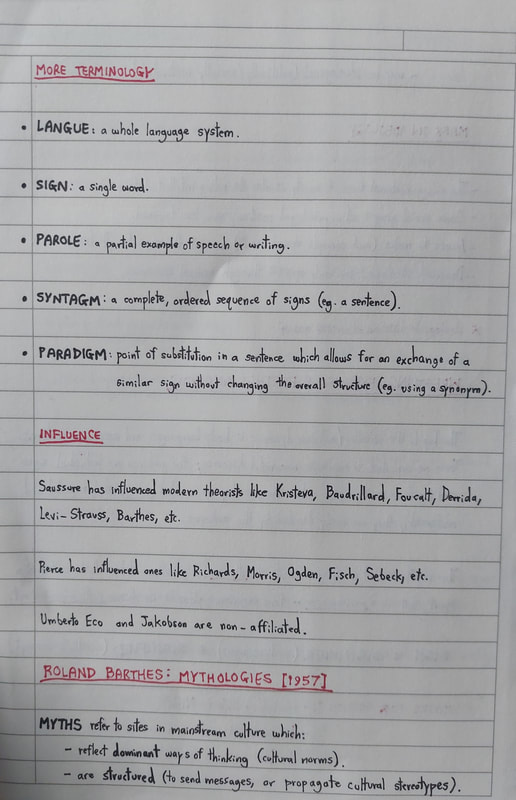 MORE TERMINOLOGY
• LANGUE: a whole language system.
• SIGN: a single word.
• PAROLE: a partial example of speech or writing.
• SYNTAGM: a complete, ordered sequence of signs (eg. a sentence).
• PARADIGM: point of substitution in a sentence which allows for an exchange of a
similar sign without changing the overall structure (eg. using a synonym).
INFLUENCE
Saussure has influenced modern theorists like Kristeva, Baudrillard, Foucalt, Derrida,
Levi-Strauss, Barthes, etc.
Pierce has influenced ones like Richards, Morris, Ogden, Fisch, Sebeck, etc.
Umberto Eco and Jakobson are non-affiliated.
ROLAND BARTHES: MYTHOLOGIES [1957]
MYTHS refer to sites in mainstream culture which:
- reflect dominant ways of thinking (cultural norms).
- are structured (to send messages, or propagate cultural stereotypes).